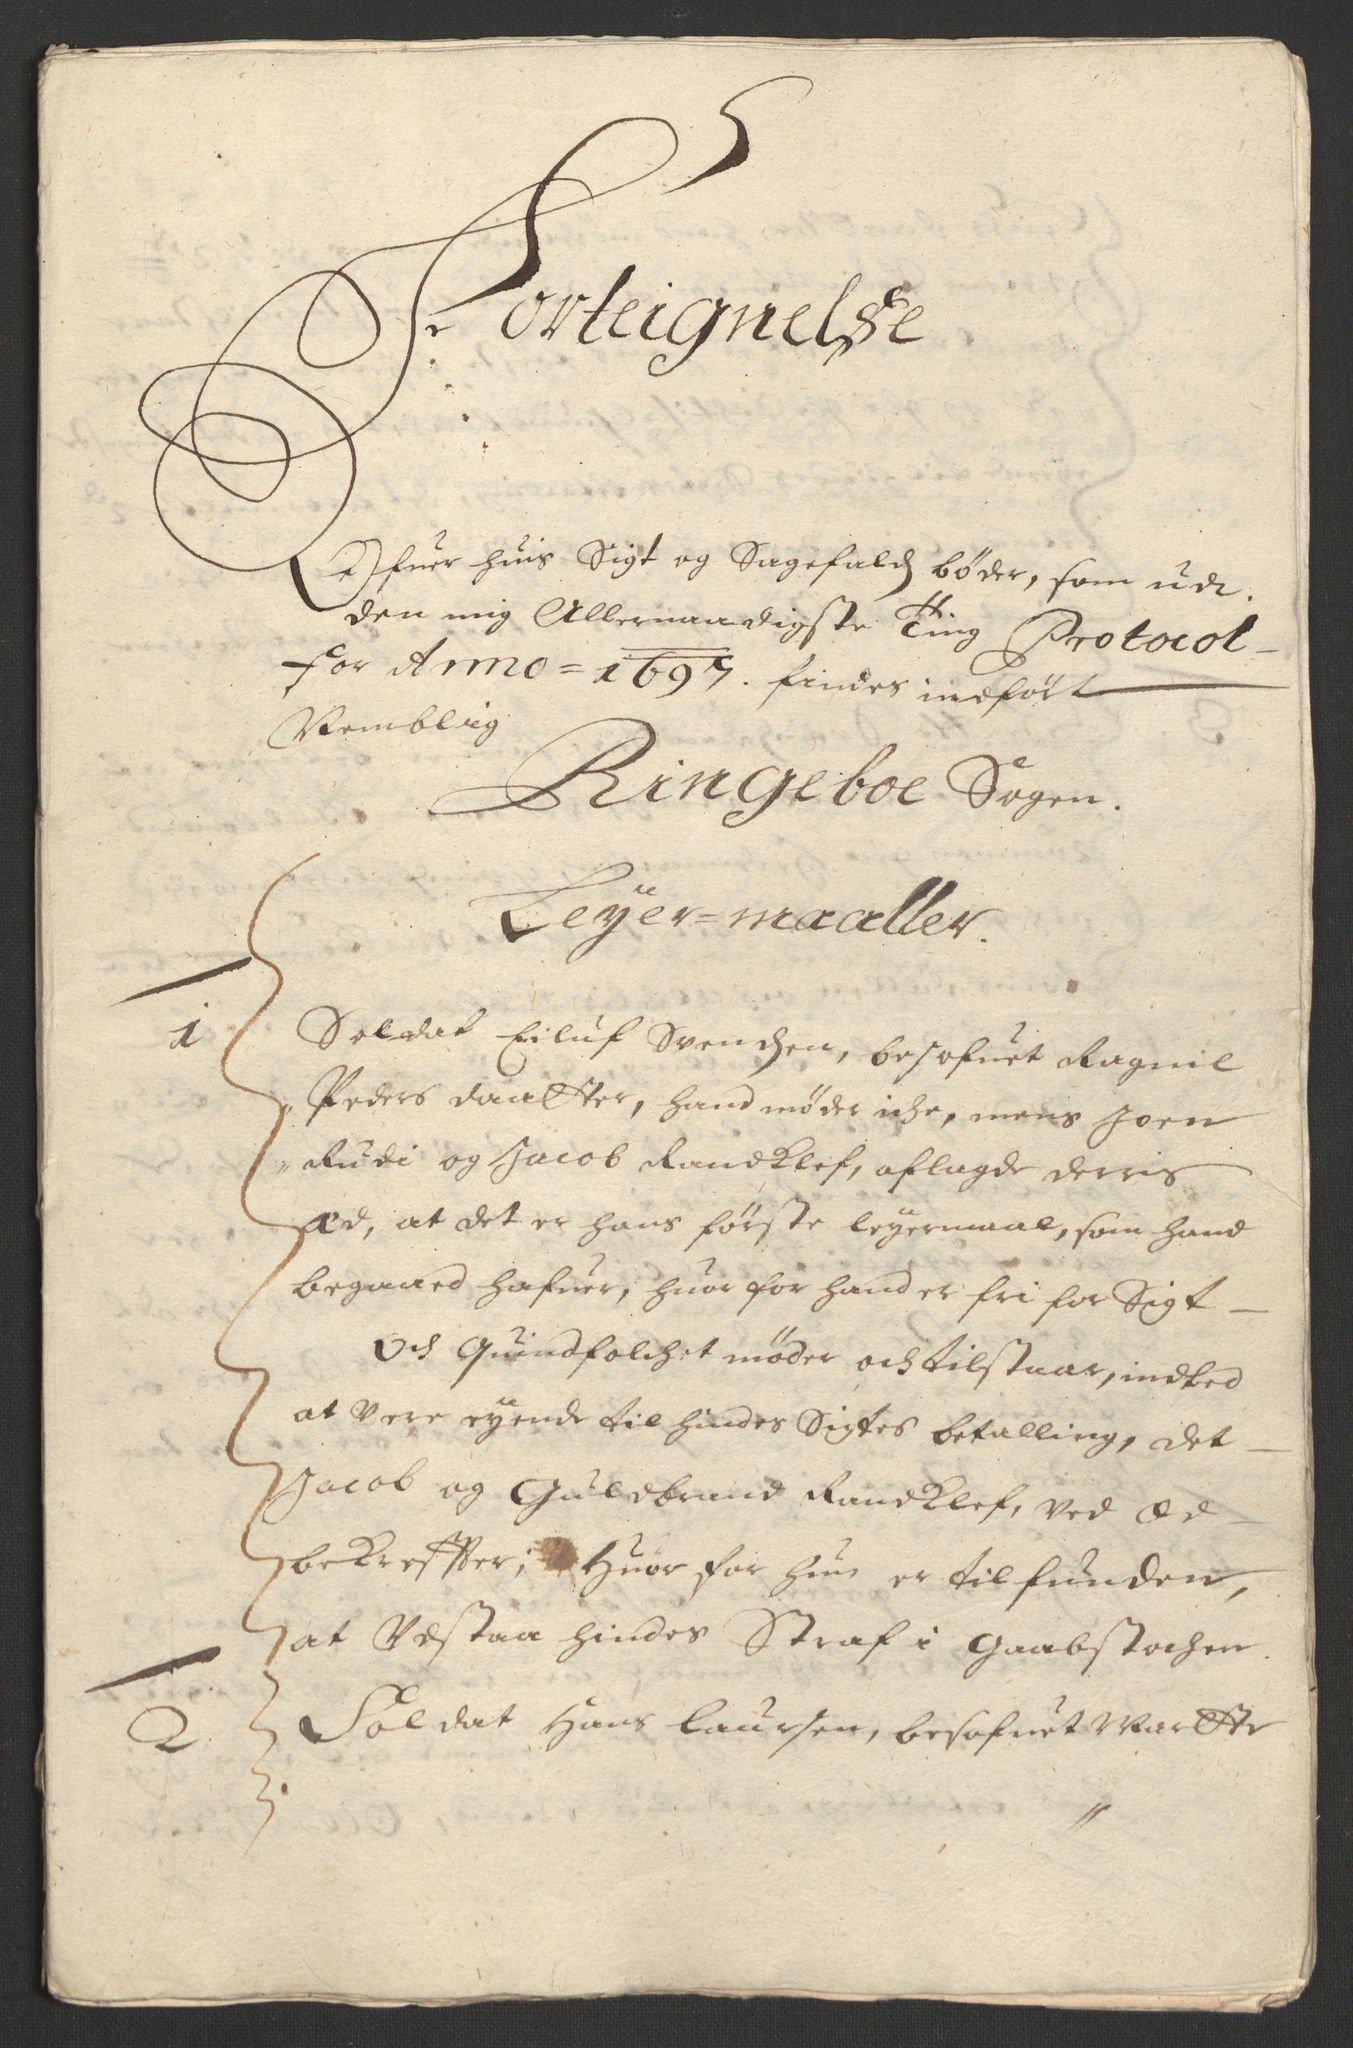 Forteignelse
Ofuer huis Sigt og Sagefalds bøder, som udi
den mig Allernaadigste Ting Protocol
for Anno = 1697. findes indført
Nemblig
Ringeboe Sogen.
Leÿer=maaller.
1 Soldat Eiluf Svendsen, besofuet Ragnil
Peders daatter, hand møder iche, mens Joen
Rudi og Jacob Randklef, aflagde derris
æd, at det er hans første leÿermaal, som hand
begaaed hafuer, huor for hand er fri for Sigt
Och Quindfolchet møder och tilstaar, indted
at vere eÿende til hindes Sigtes betalling, det
Jacob og Guldbrand Randklef, ved æd
bekreffter; Huor for hun er tilfunden,
at udstaa hindes Straf i Gaabstochen.
2 Soldat Hans Laursen, besofuet Marthe